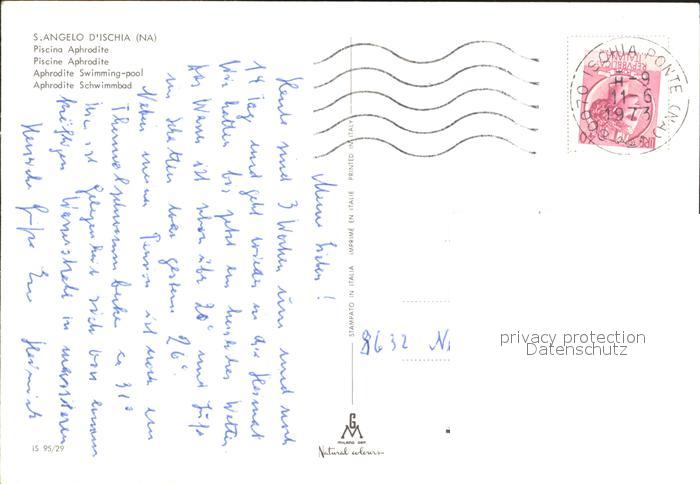 S. ANGELO D'ISCHIA (NA)
Piscina Aphrodite
Piscine Aphrodite
Aphrodite Swimming-pool
Aphrodite Schwimmbad
Meine Lieben!
Heute sind 3 Wochen um und noch
14 Tag und geht wieder in die Heimat
Wir hatten bis jetzt ein herrliches Wetter.
Das Wasser ist schon über 20° und Luft
im Schatten war gestern 26°.
Neben meiner Pension ist noch ein
Thermalschwimmbecken ca 31°
hier ist Gelegenheit sich von einem
kräftigen Wasserstrahl zu massieren
Herzliche Grüße Eure Heinrich
IS 95/29
STAMPATO IN ITALIA IMPRIMÉ EN ITALIE PRINTED IN ITALY
G M
MILANO DEP.
Natural colours
8632 N
80070 ISCHIA PONTE (NA)
-9
11-6
1973
REPVBBLICA
ITALIANA
privacy protection
Datenschutz